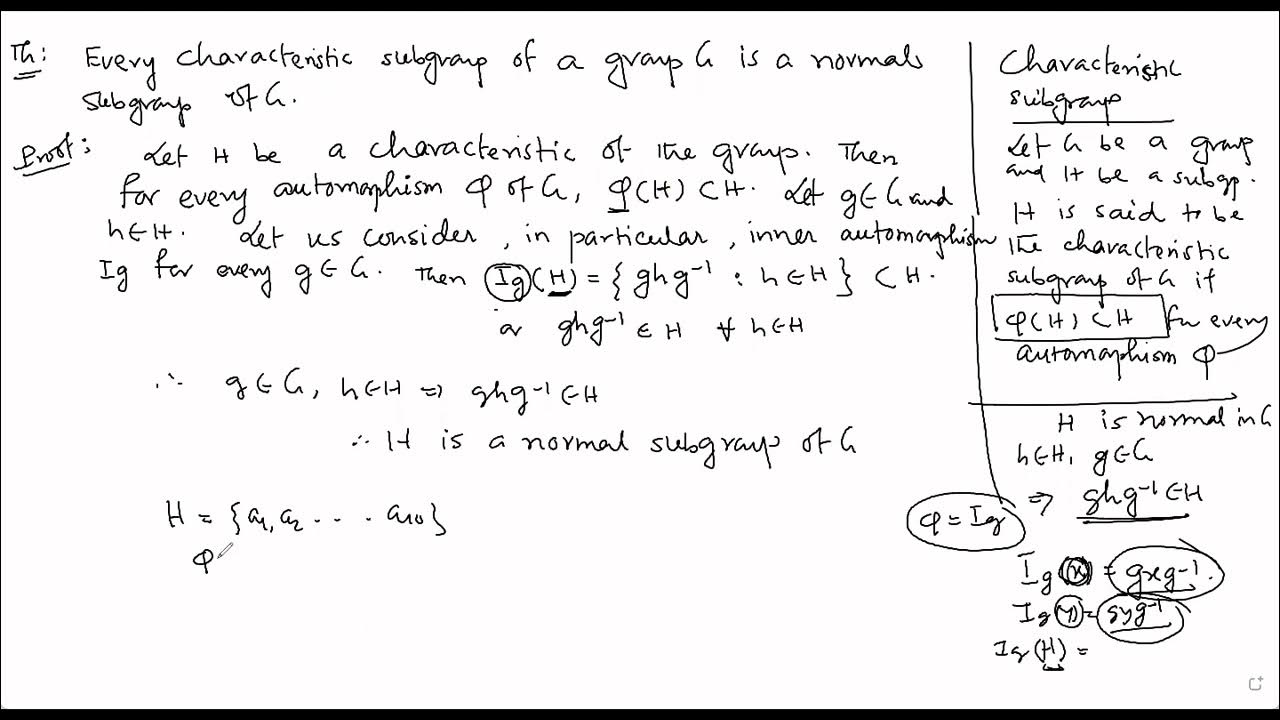 Th: Every characteristic subgroup of a group G is a normal
subgroup of G.
Proof: Let H be a characteristic of the group. Then
for every automorphism φ of G, φ(H) ⊂ H. Let g∈G and
h∈H. Let us consider, in particular, inner automorphism
Ig for every g∈G. Then Ig(H) = {ghg⁻¹ : h∈H} ⊂ H.
or ghg⁻¹ ∈ H ∀ h∈H
∴ g∈G, h∈H ⇒ ghg⁻¹∈H
∴ H is a normal subgroup of G
H = {a₁, a₂ .... a₁₀}
φ
Characteristic
subgroup
Let G be a group
and H be a subgp.
H is said to be
the characteristic
subgroup of G if
φ(H) ⊂ H for every
automorphism φ
H is normal in G
h∈H, g∈G
⇒ ghg⁻¹∈H
φ = Ig
Ig(x) = gxg⁻¹.
Ig(y) = gyg⁻¹
Ig(H) =